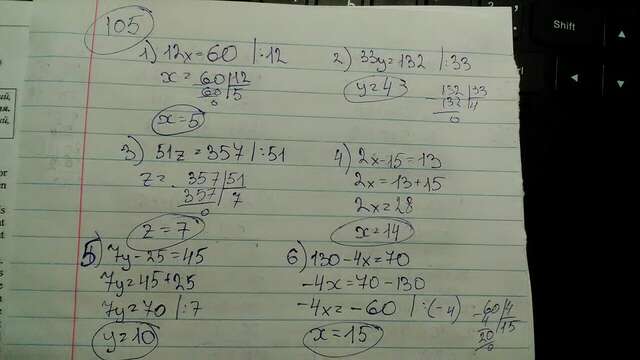 105
1) 12x=60 |:12
x= 60|12
60|5
0
x=5
2) 33y=132 |:33
y=4
132|33
-132|4
0
3) 51z=357 |:51
z= 357|51
357|7
0
z=7
4) 2x-15=13
2x=13+15
2x=28
x=14
5) 7y-25=45
7y=45+25
7y=70 |:7
y=10
6) 130-4x=70
-4x=70-130
-4x=-60 |:(-4)
x=15
-60|4
4|15
20
0
Shift